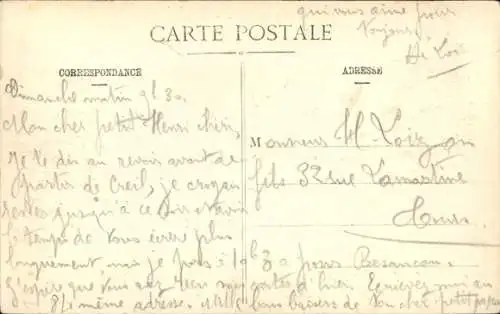 qui vous aime pour
toujours
CARTE POSTALE
CORRESPONDANCE
ADRESSE
Dimanche matin 9h 30
Mon cher petit Henri chéri,
Je te dis au revoir avant de
partir de Creil, je croyais
rester jusqu'à ce soir avoir
le temps de vous écrire plus
longuement, mais je pars à 10h 30 pour Besançon.
J'espère que vous avez reçu mes cartes d'hier. Ecrivez moi au
même adresse. Mille bons baisers de ton cher petit papa
Monsieur H.
fils 32 rue Lamartine